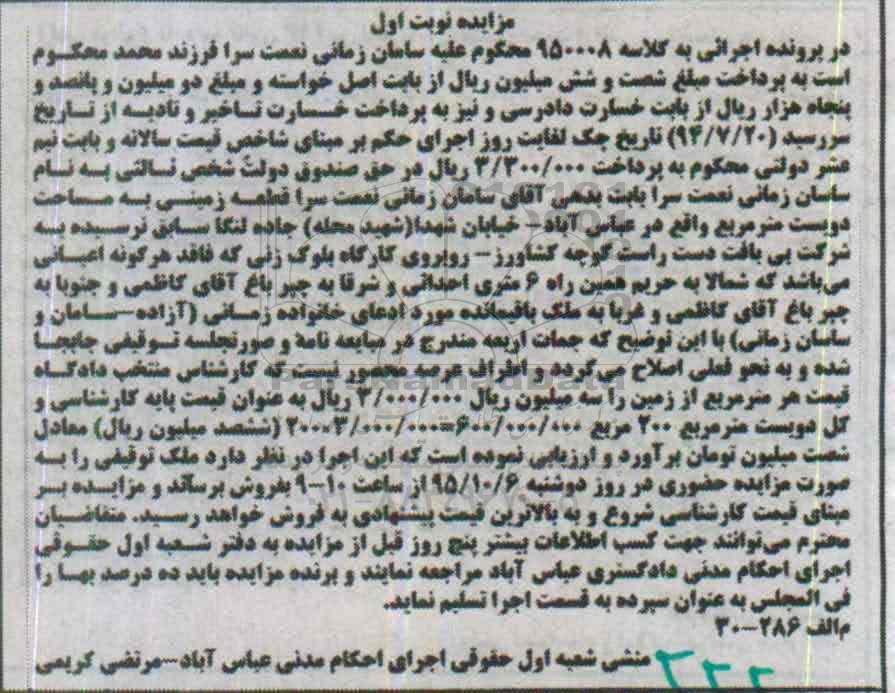 مزایده نوبت اول
در پرونده اجرائی به کلاسه ۹۵۰۰۰۸ محکوم علیه سامان زمانی نعمت سرا فرزند محمد محکوم
است به پرداخت مبلغ شصت و شش میلیون ریال از بابت اصل خواسته و مبلغ دو میلیون و پانصد و
پنجاه هزار ریال از بابت خسارت دادرسی و نیز به پرداخت خسارت تاخیر و تادیه از تاریخ
سررسید (۹۴/۷/۲۰) تاریخ چک لغایت روز اجرای حکم بر مبنای شاخص قیمت سالانه و بابت نیم
عشر دولتی محکوم به پرداخت ۳/۳۰۰/۰۰۰ ریال در حق صندوق دولت شخص ثالثی به نام
ساسان زمانی نعمت سرا بابت بدهی آقای سامان زمانی نعمت سرا قطعه زمینی به مساحت
دویست مترمربع واقع در عباس آباد- خیابان شهدا(شهید محله) جاده لنگا سابق نرسیده به
شرکت بی بافت دست راست کوچه کشاورز- روبروی کارگاه بلوک زنی که فاقد هرگونه اعیانی
می‌باشد که شمالا به حریم همین راه ۶ متری احداثی و شرقا به چپر باغ آقای کاظمی و جنوبا به
چپر باغ آقای کاظمی و غربا به ملک باقیمانده مورد ادعای خانواده زمانی (آزاده-سامان و
ساسان زمانی) با این توضیح که جهات اربعه مندرج در مبایعه نامه و صورتجلسه توقیفی جابجا
شده و به نحو فعلی اصلاح می‌گردد و اطراف عرصه محصور نیست که کارشناس منتخب دادگاه
قیمت هر مترمربع از زمین را سه میلیون ریال ۳/۰۰۰/۰۰۰ ریال به عنوان قیمت پایه کارشناسی و
کل دویست مترمربع ۲۰۰ مربع ۶۰۰/۰۰۰/۰۰۰=۲۰۰×۳/۰۰۰/۰۰۰ (ششصد میلیون ریال) معادل
شصت میلیون تومان برآورد و ارزیابی نموده است که این اجرا در نظر دارد ملک توقیفی را به
صورت مزایده حضوری در روز دوشنبه ۹۵/۱۰/۶ از ساعت ۱۰-۹ بفروش برساند و مزایده بر
مبنای قیمت کارشناسی شروع و به بالاترین قیمت پیشنهادی به فروش خواهد رسید. متقاضیان
محترم می‌توانند جهت کسب اطلاعات بیشتر پنج روز قبل از مزایده به دفتر شعبه اول حقوقی
اجرای احکام مدنی دادگستری عباس آباد مراجعه نمایند و برنده مزایده باید ده درصد بها را
فی المجلس به عنوان سپرده به قسمت اجرا تسلیم نماید.
م‌الف ۲۸۶-۳۰
منشی شعبه اول حقوقی اجرای احکام مدنی عباس آباد-مرتضی کریمی
ParsNamadData